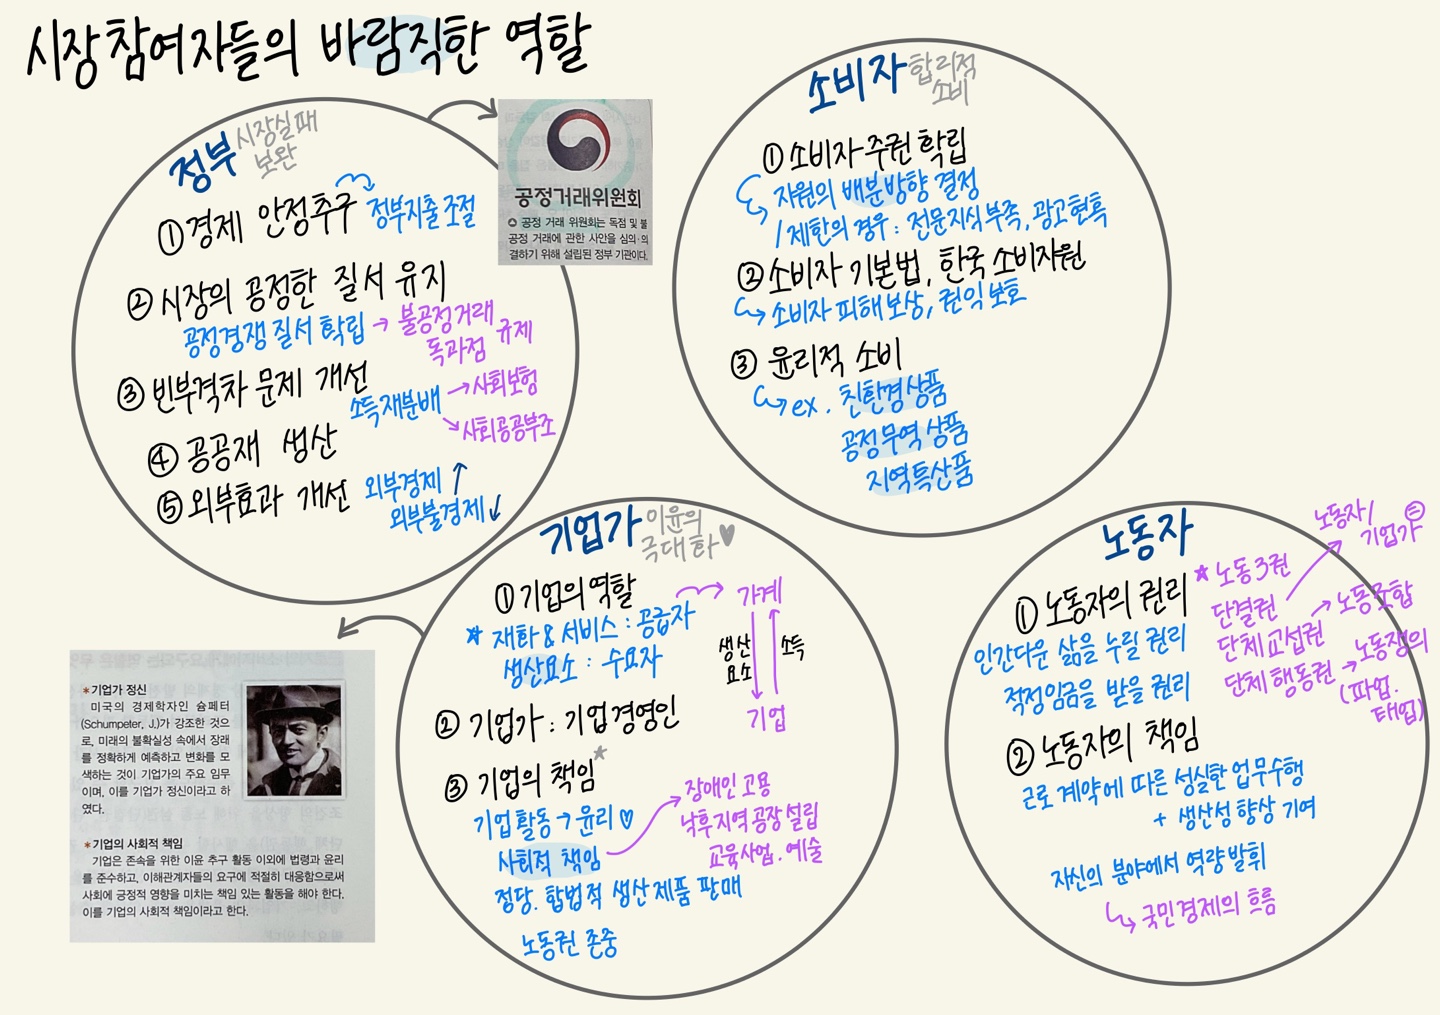 시장참여자들의 바람직한 역할
정부 시장실패
보완
① 경제 안정추구 정부지출 조절
② 시장의 공정한 질서 유지
공정경쟁 질서 확립 → 불공정거래
독과점 규제
③ 빈부격차 문제 개선
소득재분배 → 사회보험
↘ 사회공공부조
④ 공공재 생산
⑤ 외부효과 개선 외부경제 ↑
외부불경제 ↓
공정거래위원회
공정 거래 위원회는 독점 및 불
공정 거래에 관한 사안을 심의·의
결하기 위해 설립된 정부 기관이다.
소비자 합리적
소비
① 소비자 주권 확립
자원의 배분방향 결정
/ 제한의 경우 : 전문지식 부족, 광고 현혹
② 소비자 기본법, 한국 소비자원
소비자 피해 보상, 권익 보호
③ 윤리적 소비
ex. 친환경상품
공정무역 상품
지역특산품
기업가 이윤의
극대화♥
① 기업의 역할
* 재화 & 서비스 : 공급자
생산요소 : 수요자
가계
생산
요소
소득
기업
② 기업가 : 기업 경영인
③ 기업의 책임*
기업 활동 → 윤리♡
사회적 책임
장애인 고용
낙후지역 공장 설립
교육사업. 예술
정당. 합법적 생산 제품 판매
노동권 존중
*기업가 정신
미국의 경제학자인 슘페터
(Schumpeter, J.)가 강조한 것으
로, 미래의 불확실성 속에서 장래
를 정확하게 예측하고 변화를 모
색하는 것이 기업가의 주요 임무
이며, 이를 기업가 정신이라고 하
였다.
*기업의 사회적 책임
기업은 존속을 위한 이윤 추구 활동 이외에 법령과 윤리
를 준수하고, 이해관계자들의 요구에 적절히 대응함으로써
사회에 긍정적 영향을 미치는 책임 있는 활동을 해야 한다.
이를 기업의 사회적 책임이라고 한다.
노동자
① 노동자의 권리
인간다운 삶을 누릴 권리
적정임금을 받을 권리
* 노동3권
단결권
단체 교섭권
단체 행동권
노동자 /
기업가 =
→ 노동조합
→ 노동쟁의
(파업.
태업)
② 노동자의 책임
근로 계약에 따른 성실한 업무수행
+ 생산성 향상 기여
자신의 분야에서 역량 발휘
국민경제의 흐름